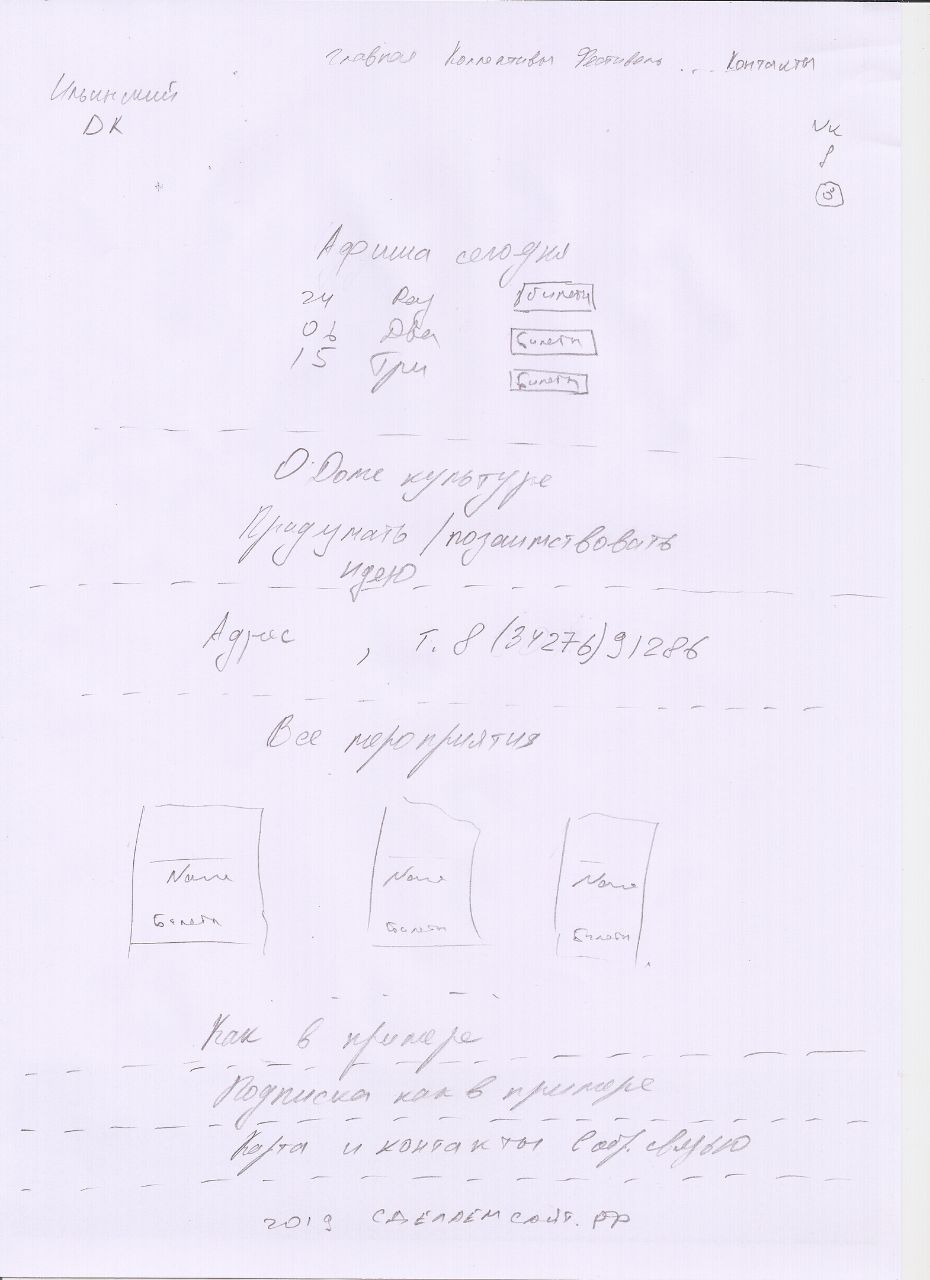 Главная Коллективы Фестиваль ... Контакты
Ильинский
ДК
VK
f
Афиша сегодня
24 Раз билеты
06 Два Билеты
15 Три Билеты
О Доме культуре
Придумать / позаимствовать
идею
Адрес , т. 8 (34276) 91286
Все мероприятия
Name Name Name
Билеты Билеты Билеты
Как в примере
Подписка как в примере
Карта и контакты с обр. связью
2019 СДЕЛАЕМ САЙТ.РФ